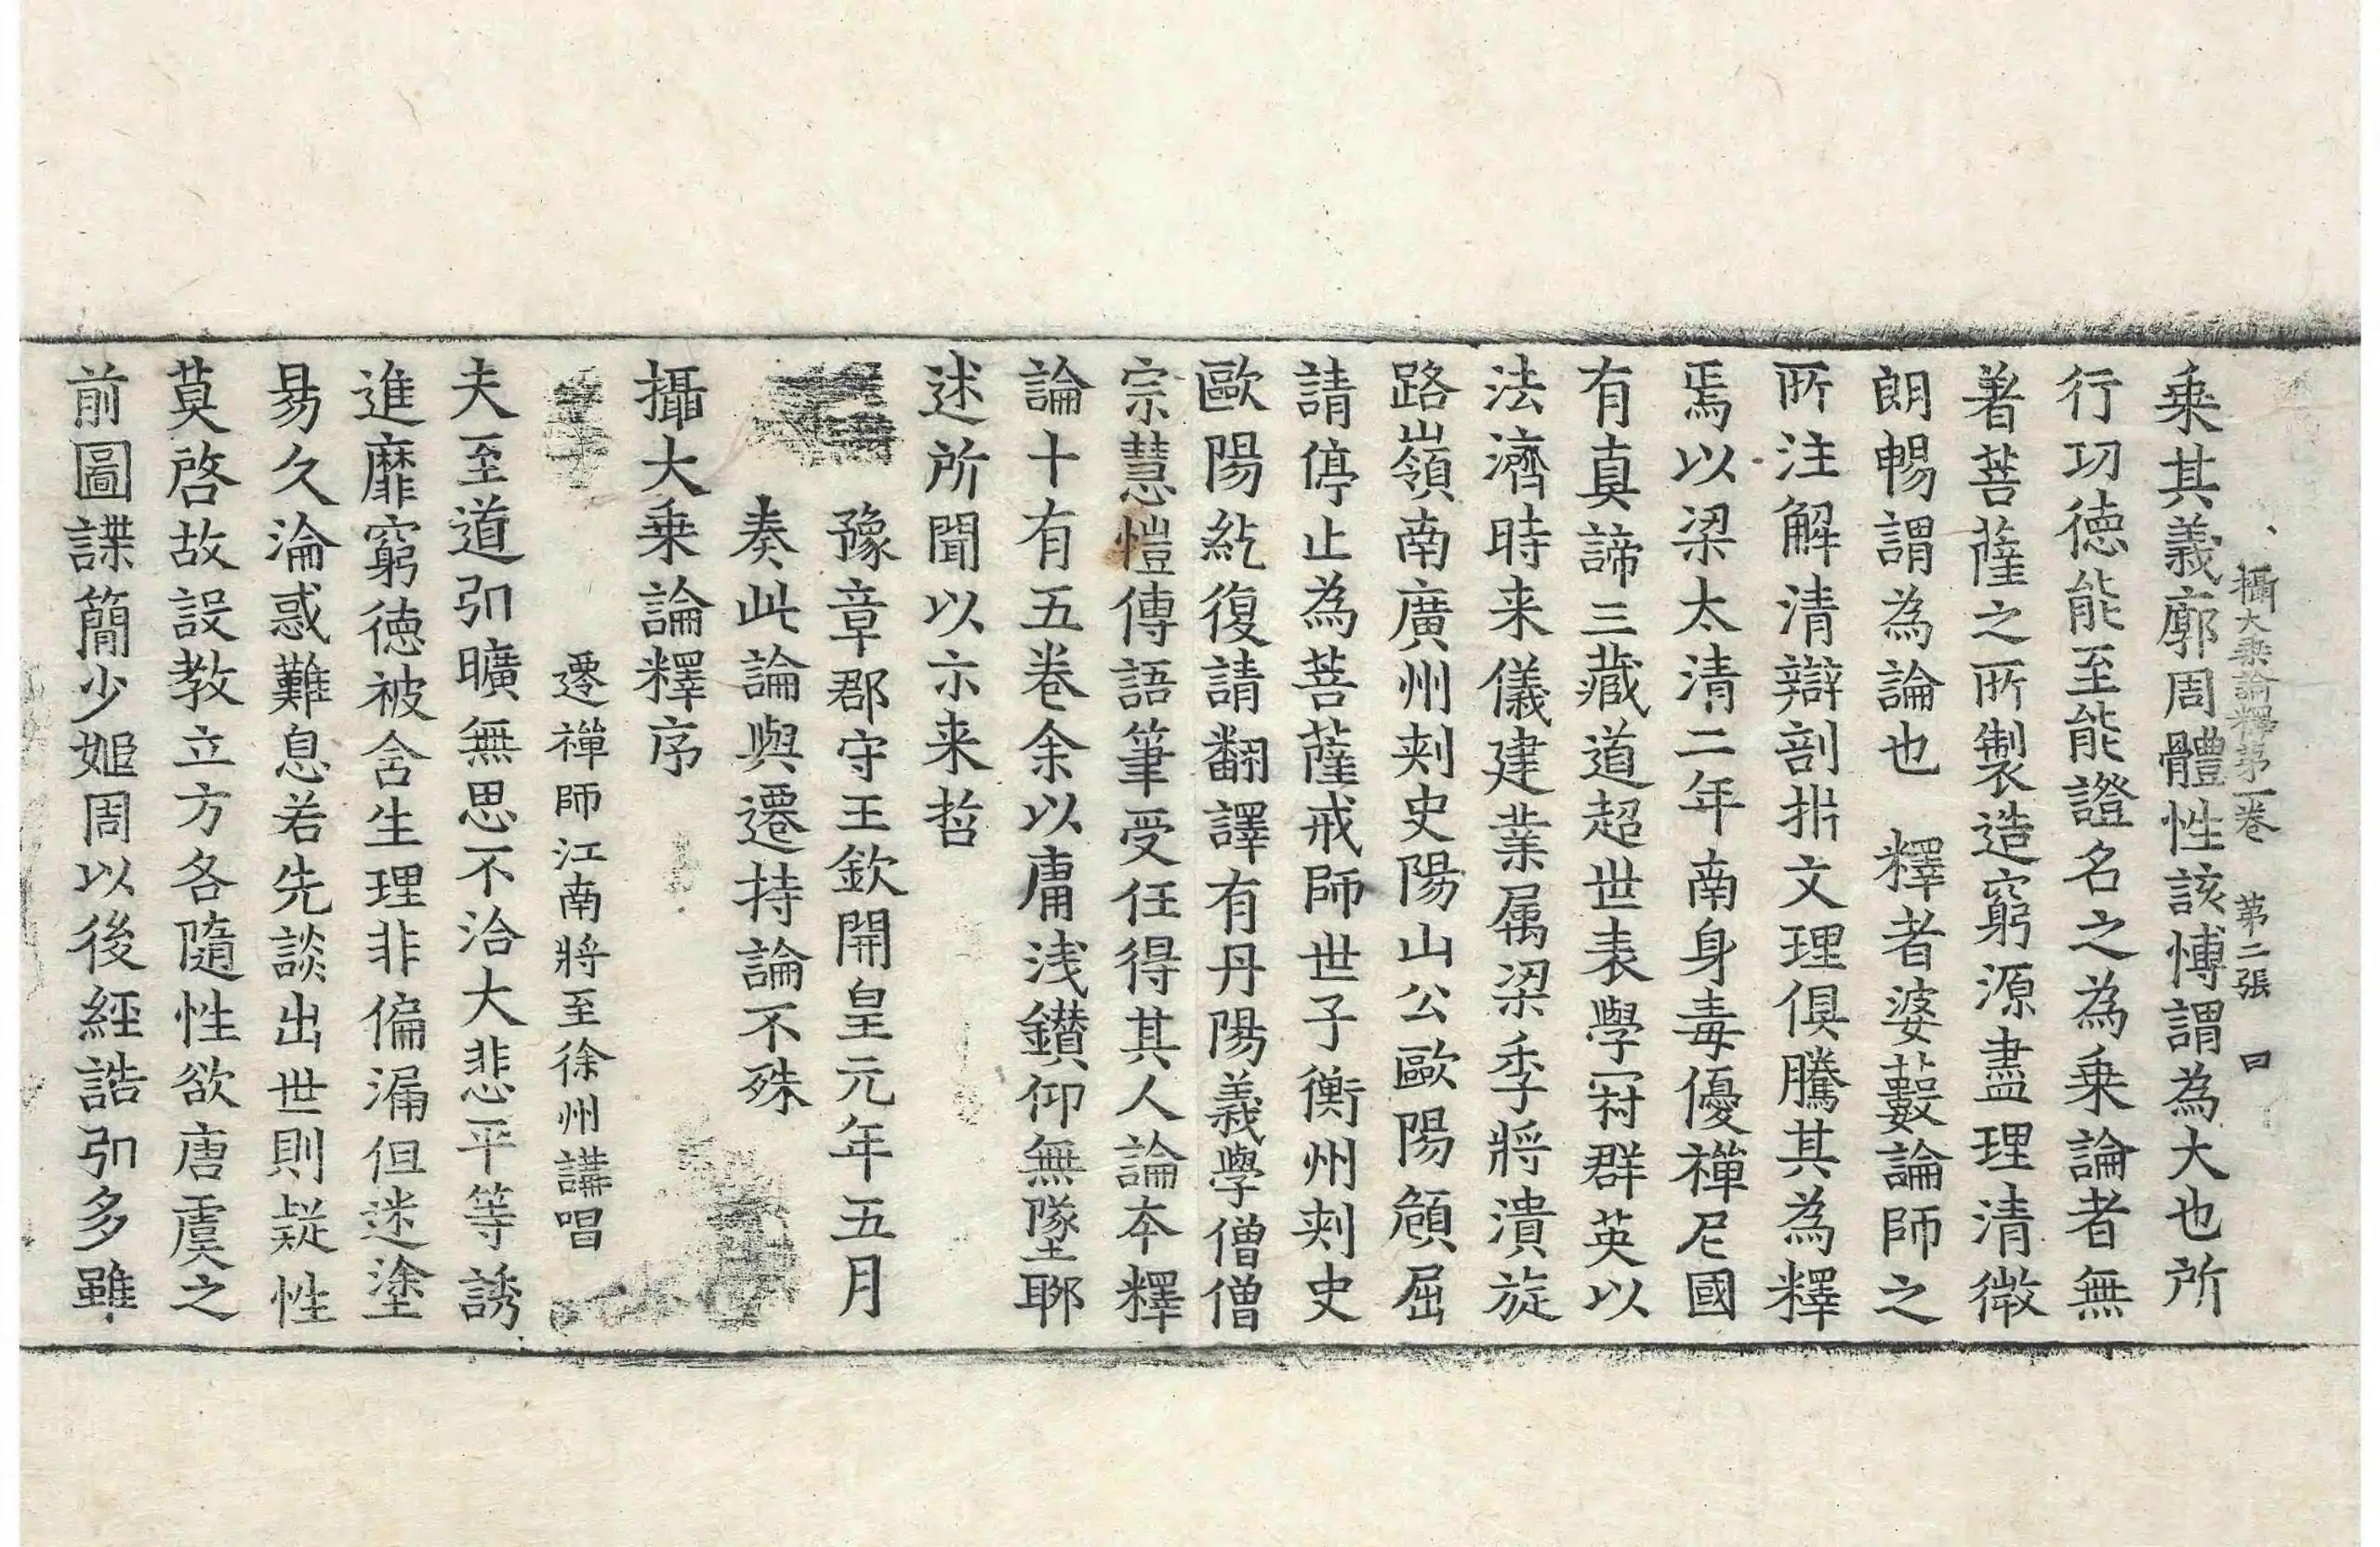 攝大乗論釋第一卷 第二張 曰
乗其義廓周體性該愽謂為大也所
行功徳能至能證名之為乗論者無
著菩薩之所製造窮源盡理清微
朗暢謂為論也 釋者婆藪論師之
所注解清辯剖析文理俱騰其為釋
焉以梁太清二年南身毒優禪尼國
有真諦三藏道超世表學冠群英以
法濟時来儀建業属梁季將潰旋
路嶺南廣州刾史陽山公歐陽頠屈
請停止為菩薩戒師世子衡州刾史
歐陽紇復請翻譯有丹陽義學僧僧
宗慧愷傳語筆受任得其人論夲釋
論十有五卷余以庸浅鑚仰無墜聊
述所聞以示来哲
豫章郡守王欽開皇元年五月
奏此論與遷持論不殊
攝大乗論釋序
遷禪師江南將至徐州講唱
夫至道弘曠無思不洽大悲平等誘
進靡窮徳被含生理非偏漏但迷塗
易久淪惑難息若先談出世則疑性
莫啓故設教立方各隨性欲唐虞之
前圖諜簡少姬周以後經誥弘多雖